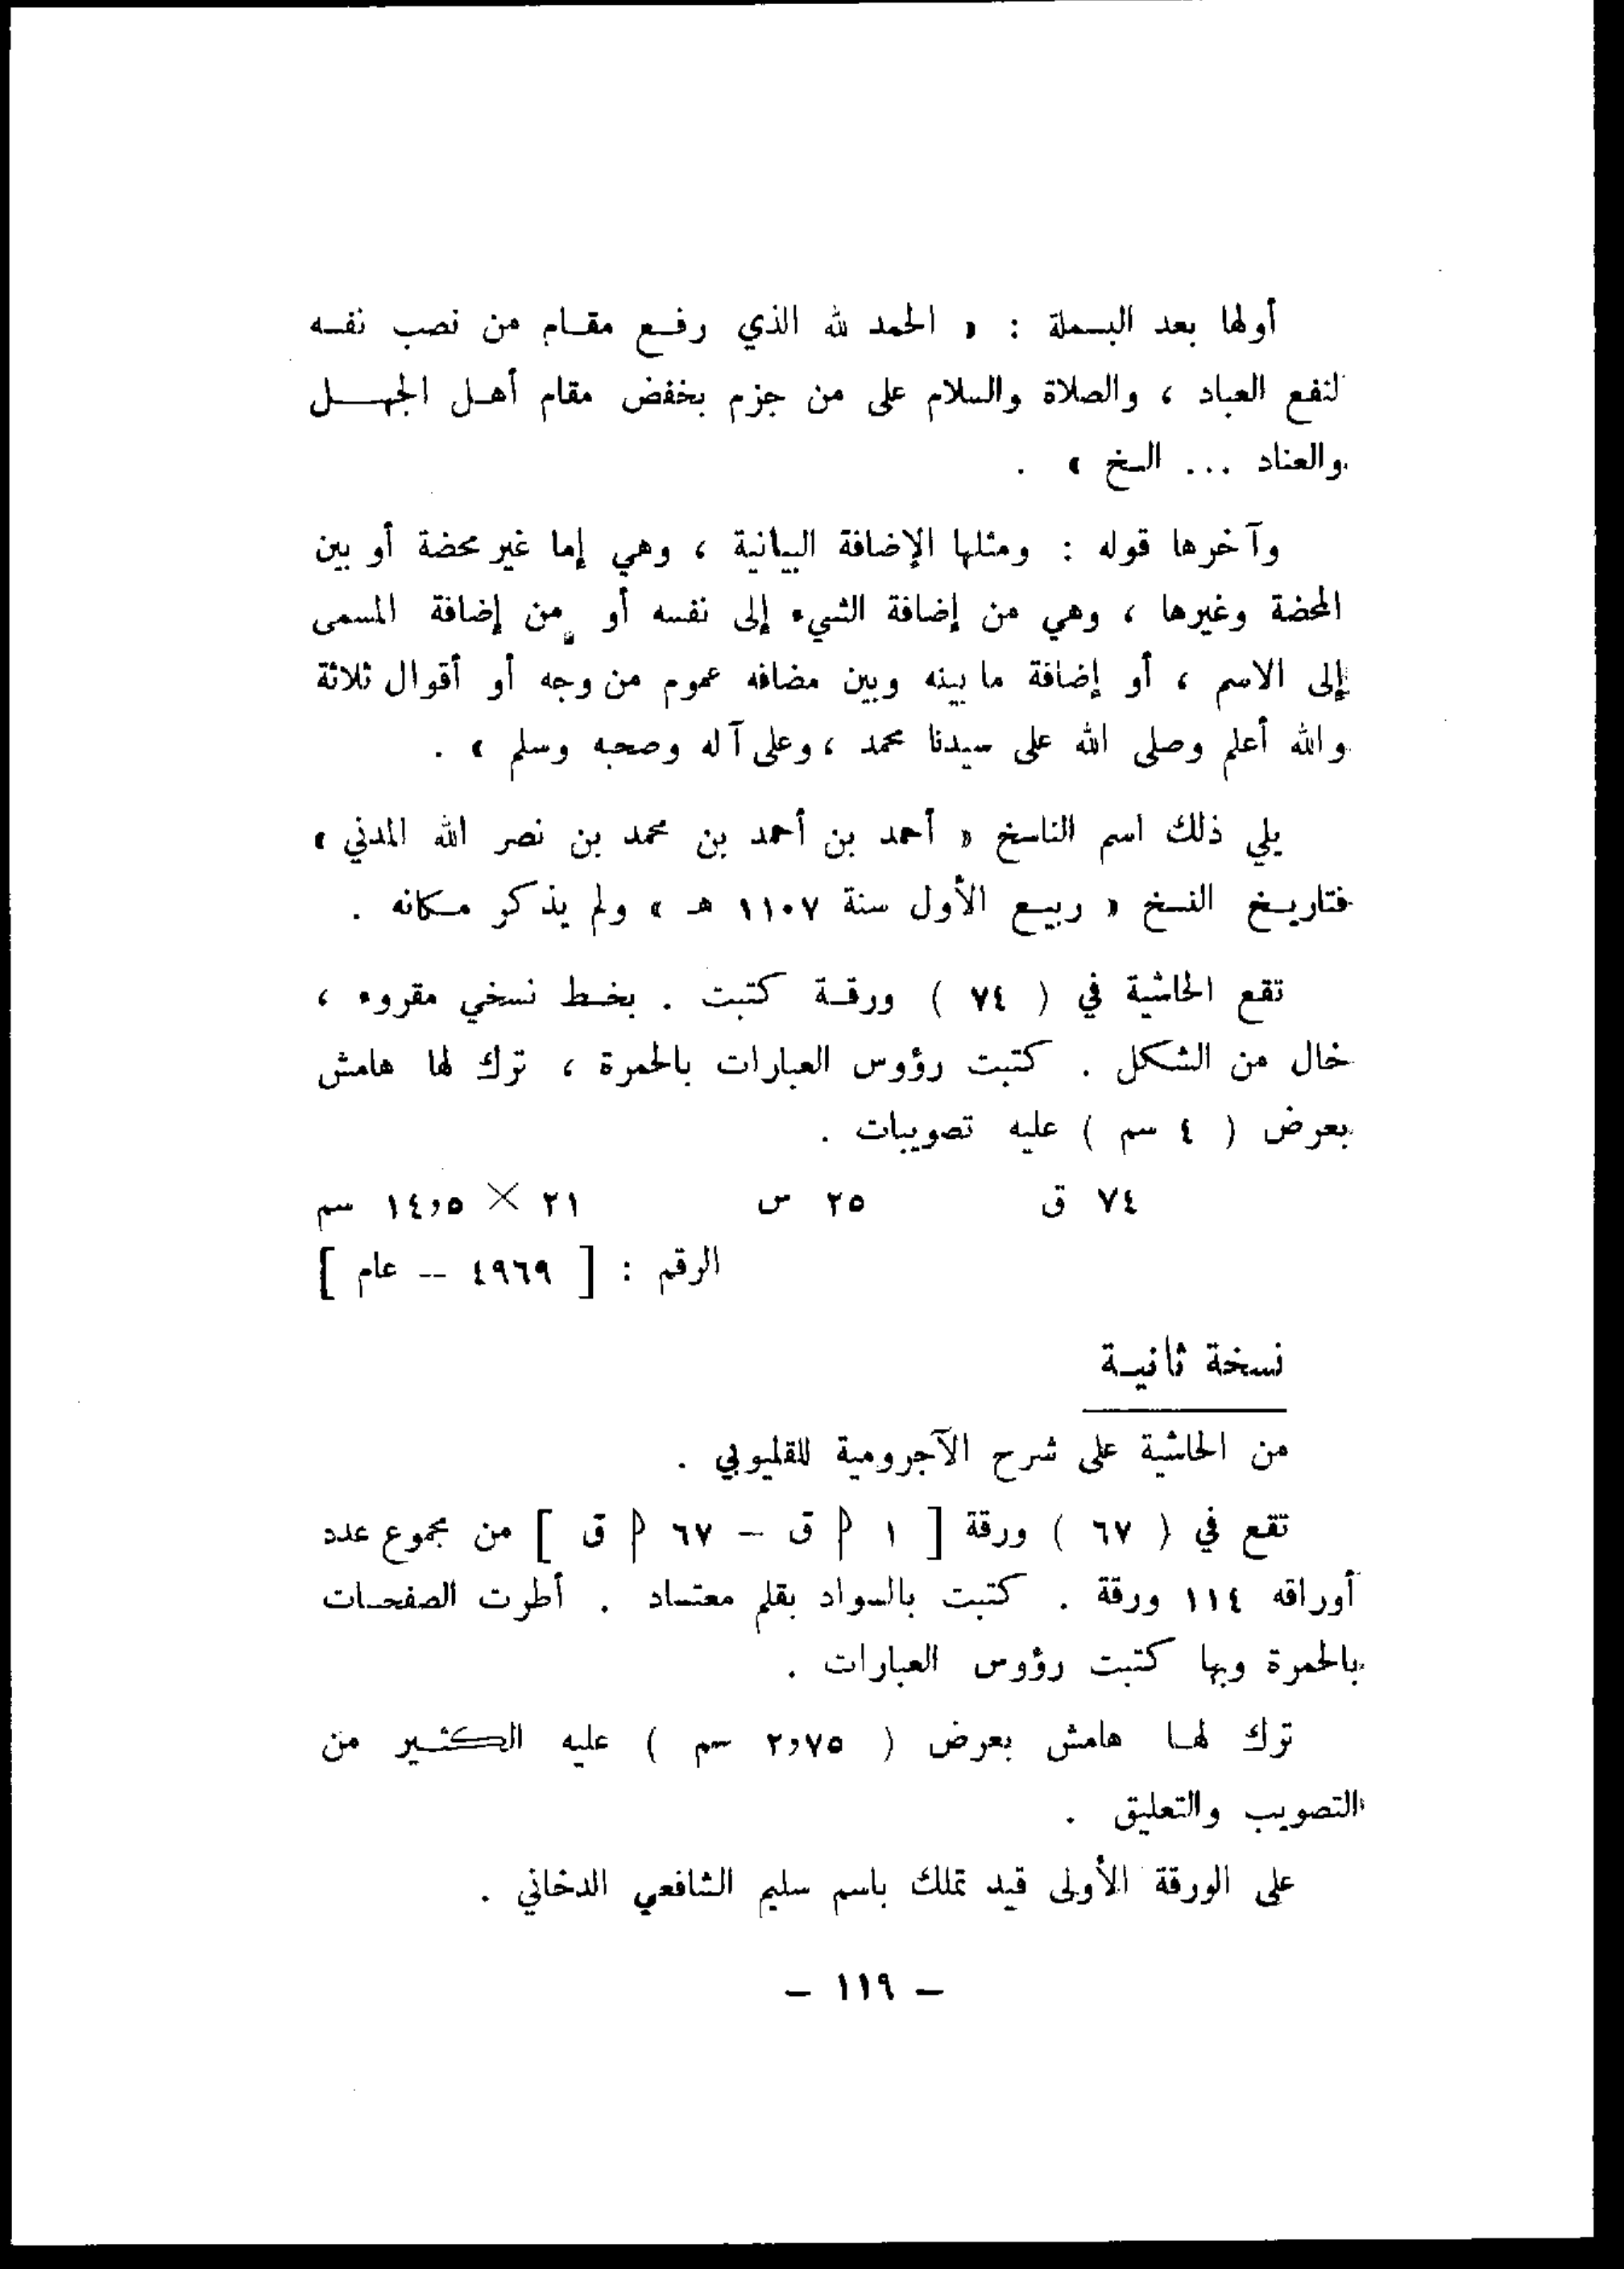 أولها بعد البسملة : « الحمد لله الذي رفع مقام من نصب نفسه
لنفع العباد ، والصلاة والسلام على من جزم بخفض مقام أهل الجهل
والعناد ... الخ » .
وآخرها قوله : ومثلها الإضافة البيانية ، وهي إما غير محضة أو بين
المحضة وغيرها ، وهي من إضافة الشيء إلى نفسه أو من إضافة المسمى
إلى الاسم ، أو إضافة ما بينه وبين مضافه عموم من وجه أو أقوال ثلاثة
والله أعلم وصلى الله على سيدنا محمد ، وعلى آله وصحبه وسلم » .
يلي ذلك اسم الناسخ « أحمد بن أحمد بن محمد بن نصر الله المدني »
فتاريخ النسخ « ربيع الأول سنة ١١٠٧ هـ » ولم يذكر مكانه .
تقع الحاشية في ( ٧٤ ) ورقة كتبت . بخط نسخي مقروء ،
خال من الشكل . كتبت رؤوس العبارات بالحمرة ، ترك لها هامش
بعرض ( ٤ سم ) عليه تصويبات .
٧٤ ق ٢٥ س ٢١ × ١٤,٥ سم
الرقم : [ ٤٩٦٩ -- عام ]
نسخة ثانية
من الحاشية على شرح الآجرومية للقليوبي .
تقع في ( ٦٧ ) ورقة [ ١ أ ق – ٦٧ أ ق ] من مجموع عدد
أوراقه ١١٤ ورقة . كتبت بالسواد بقلم معتاد . أطرت الصفحات
بالحمرة وبها كتبت رؤوس العبارات .
ترك لها هامش بعرض ( ٢,٧٥ سم ) عليه الكثير من
التصويب والتعليق .
على الورقة الأولى قيد تملك باسم سليم الشافعي الدخاني .
– ١١٩ –